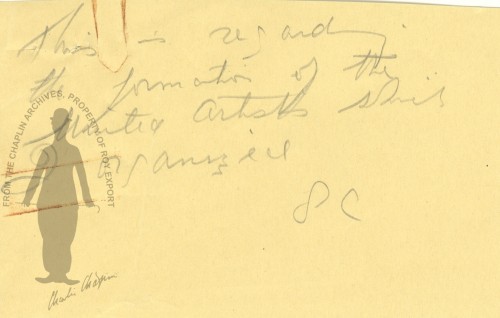 This is regarding
the formation of the
United Artists
organized
S C
FROM THE CHAPLIN ARCHIVES. PROPERTY OF ROY EXPORT
Charlie Chaplin